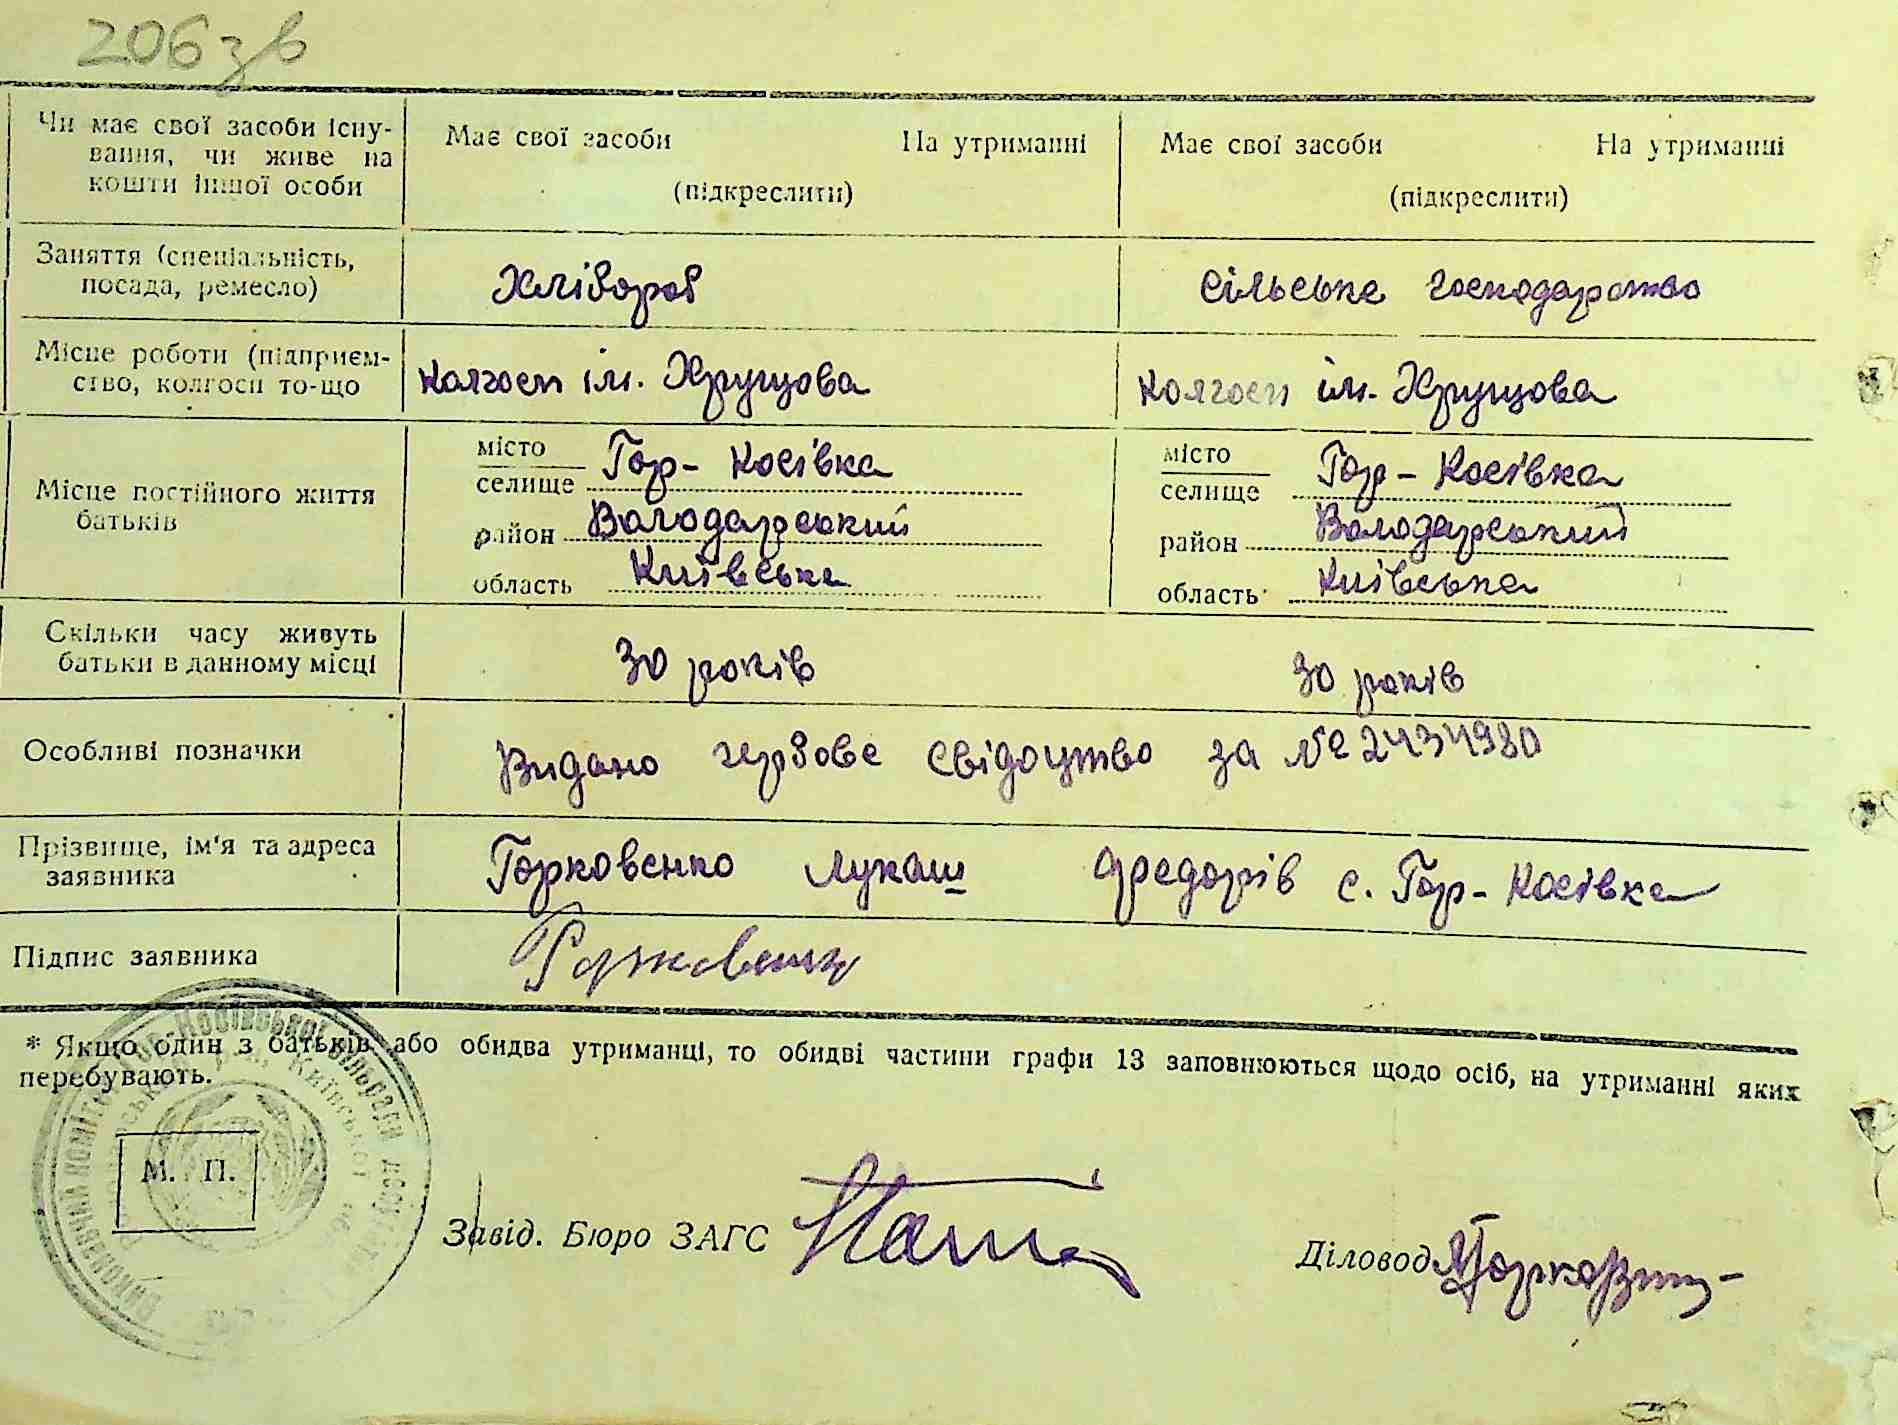 206 зв
Чи має свої засоби існу-
вання, чи живе на
кошти іншої особи
Має свої засоби На утриманні
(підкреслити)
Має свої засоби На утриманні
(підкреслити)
Заняття (спеціальність,
посада, ремесло)
Хлібороб
Сільське господарство
Місце роботи (підприєм-
ство, колгосп то-що
Колгосп ім. Хрущова
Колгосп ім. Хрущова
Місце постійного життя
батьків
місто
селище Гор-Косівка
район Володарський
область Київська
місто
селище Гор-Косівка
район Володарський
область Київська
Скільки часу живуть
батьки в данному місці
30 років
30 років
Особливі позначки
Видано гербове свідоцтво за № 2434980
Прізвище, ім'я та адреса
заявника
Горковенко Лукаш Федорів с. Гор-Косівка
Підпис заявника
Горковенко
* Якщо один з батьків або обидва утриманці, то обидві частини графи 13 заповнюються щодо осіб, на утриманні яких
перебувають.
М. П.
Завід. Бюро ЗАГС
Діловод